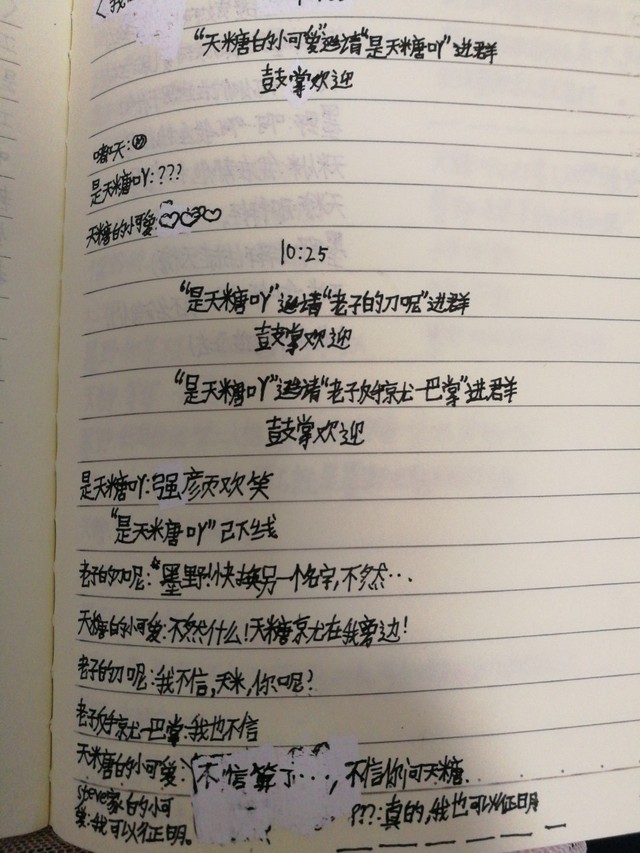 “天糖的小可爱”邀请“是天糖吖”进群
鼓掌欢迎
嘟天:
是天糖吖:???
天糖的小可爱:♡♡♡
10:25
“是天糖吖”邀请“老子的刀呢”进群
鼓掌欢迎
“是天糖吖”邀请“老子好想就一巴掌”进群
鼓掌欢迎
是天糖吖:强颜欢笑
“是天糖吖”已下线
老子的刀呢:“墨野!快换另一个名字,不然…
天糖的小可爱:不然什么!天糖就在我旁边!
老子的刀呢:我不信,天米,你呢?
老子就一巴掌:我也不信
天糖的小可爱:不信算了…,不信你问天糖.
steve家的小可
爱:我可以征明。 ???:真的,我也可以征明